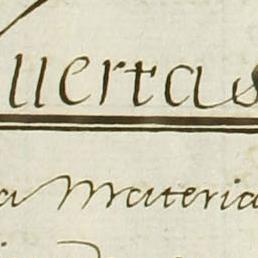 uertas
a Materia